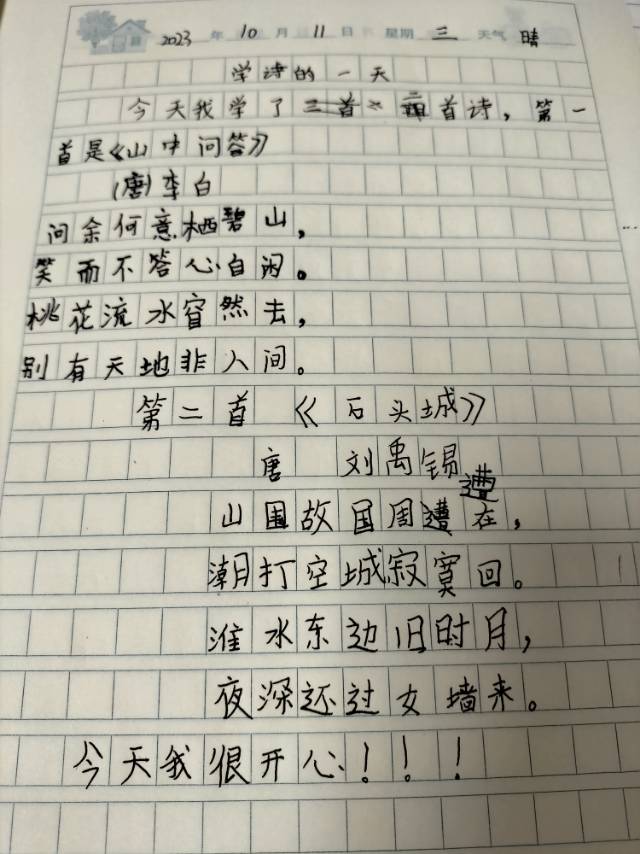 2023 年 10 月 11 日 星期 三 天气 晴
学诗的一天
今天我学了三首诗，第一
首是《山中问答》
(唐)李白
问余何意栖碧山，
笑而不答心自闲。
桃花流水窅然去，
别有天地非人间。
第二首 《石头城》
唐 刘禹锡
山围故国周遭在，
潮打空城寂寞回。
淮水东边旧时月，
夜深还过女墙来。
今天我很开心！！！